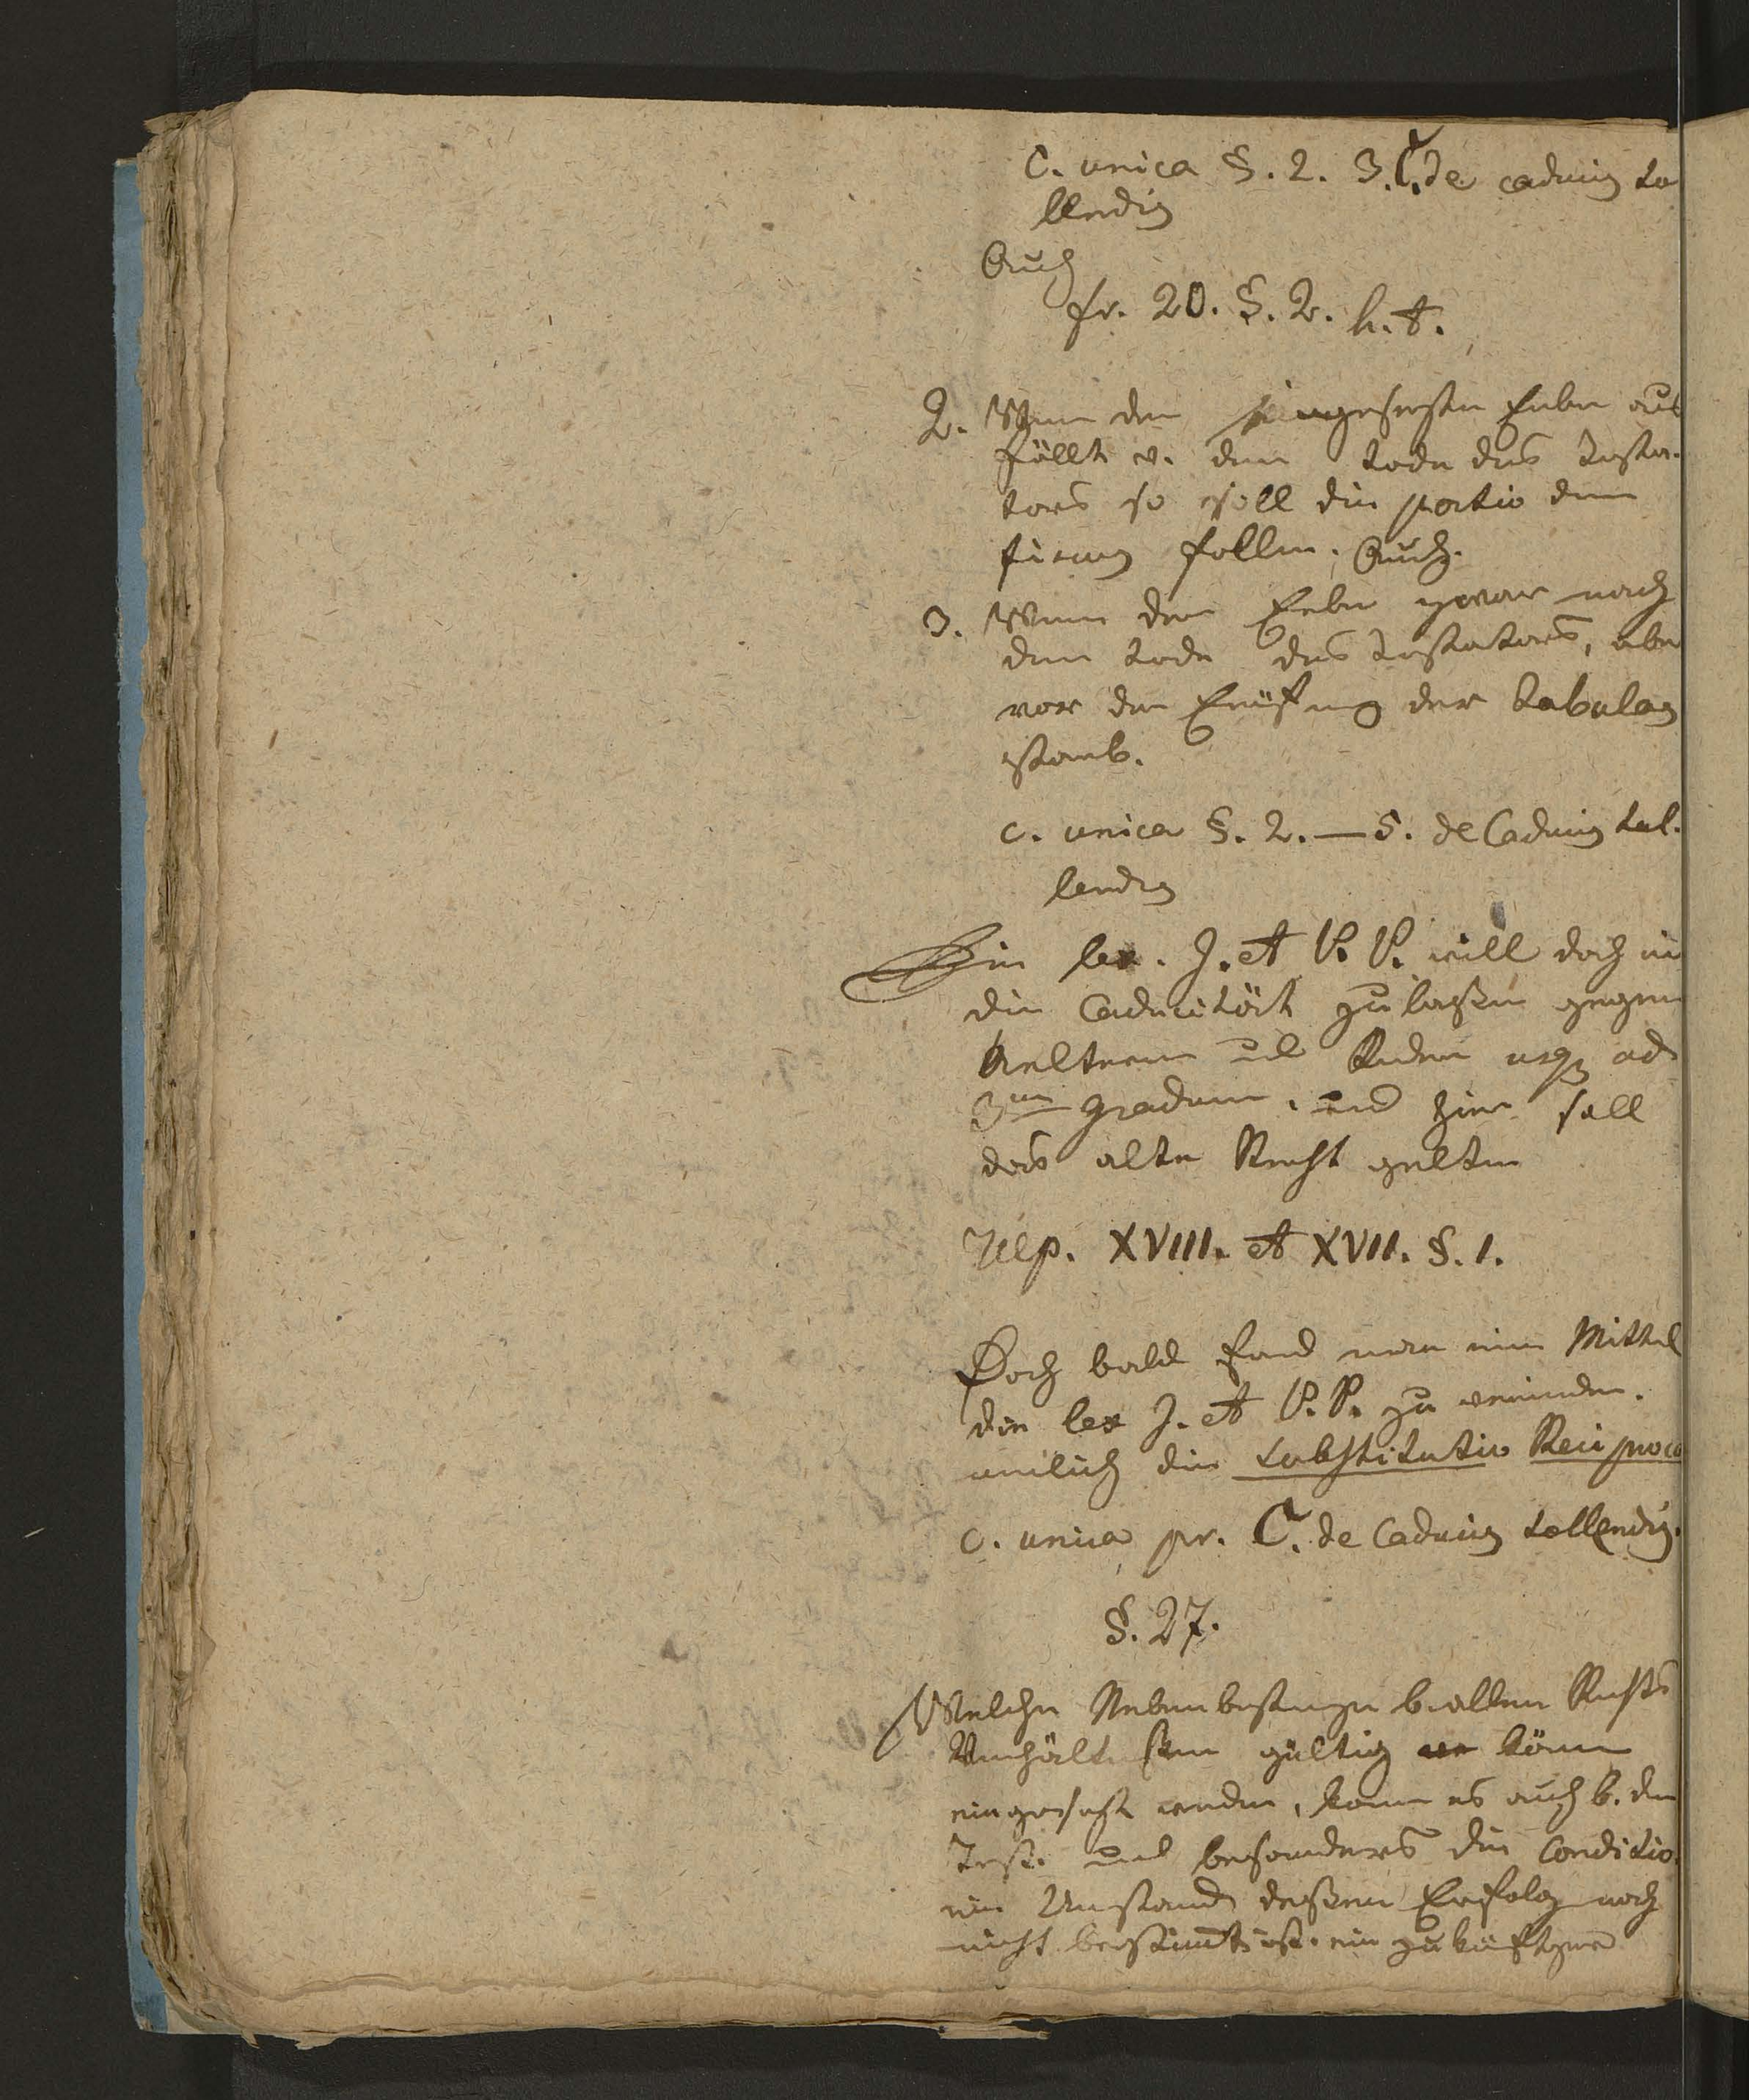 C. unica §. 2. 3. C. de caducis to
llendis
Auch
fr. 20. §. 2. h. t.
2. Wenn der eingesetzte Erbe aus
fällt v. dem Tode des Testa-
tors so soll die portio dem
fiscus fallen. Auch.
3. Wenn der Erbe zwar nach
dem Tode des Testators, aber
vor der Eröfnung der tabulas
starb.
c. unica §. 2. — 5. de Caducis tol-
lendis
Die lex. J. et P. P. will doch
die Caducität zulaßen gegen
Aeltern und Kinder usq ad
3um gradum, und hier soll
das alte Recht gelten
Ulp. XVIII. et XVII. §. 1.
Doch bald fand man ein Mittel
die lex J. et P. P. zu
nemlich die substitutio Reciproca
c. unica pr. C. de Caducis tollendis.
§. 27.
Welche b. allen Rechts
Verhältnißen gültig können
eingesezt werden, kann es auch b. den
Test. und besonders die Conditio.
ein Umstand deßen Erfolg noch
nicht bestimt ist. ein zukünftiger